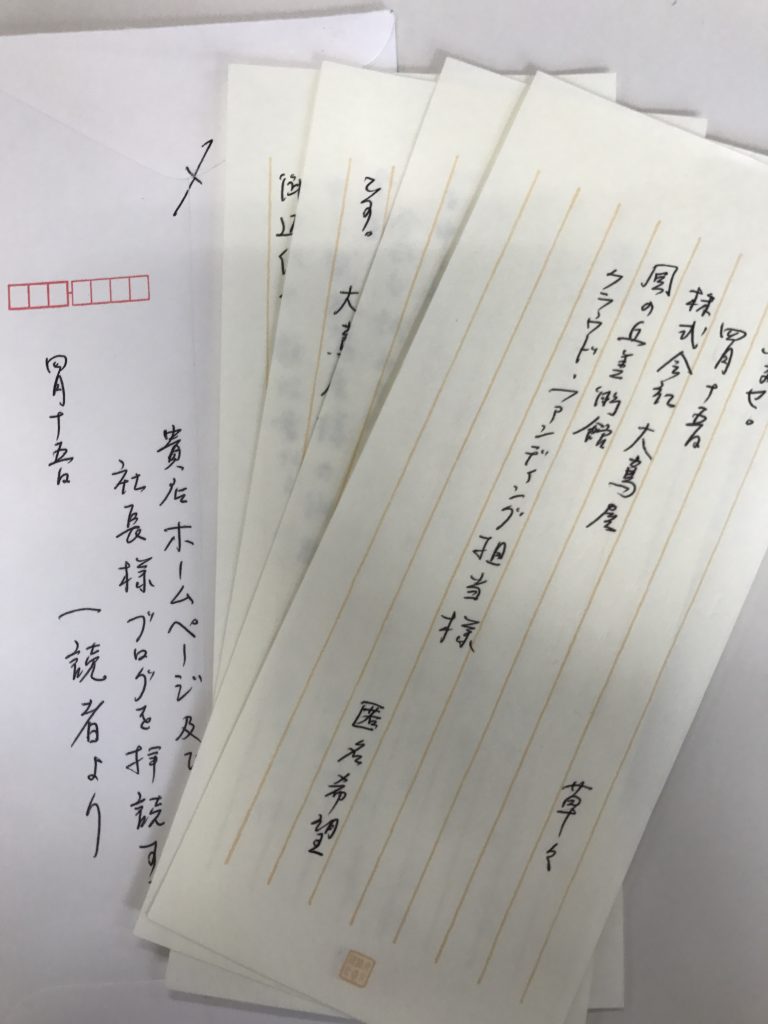 ませ。
草々
四月十五日
株式会社 大蔦屋
岡の丘美術館
クラウド・ファンディング 担当様
匿名希望
です。
大
〆
貴店ホームページ及び
社長様ブログを拝読す
四月十五日
一読者より